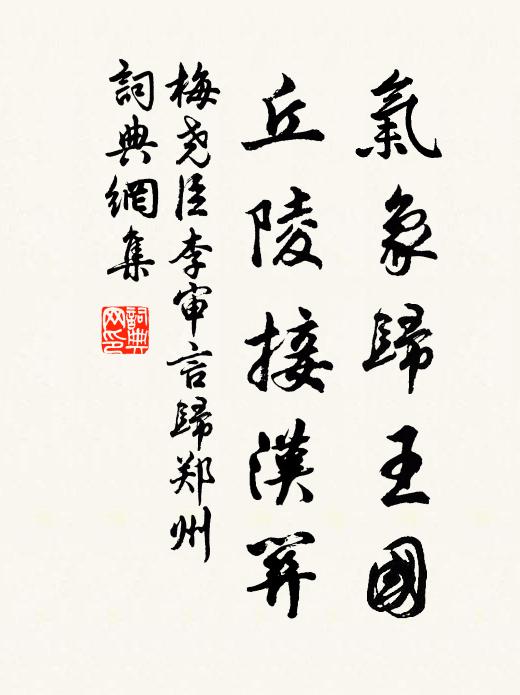 氣象歸王國
丘陵接漢關
梅尧臣李审言歸郑州
詞典網集
詞典网印